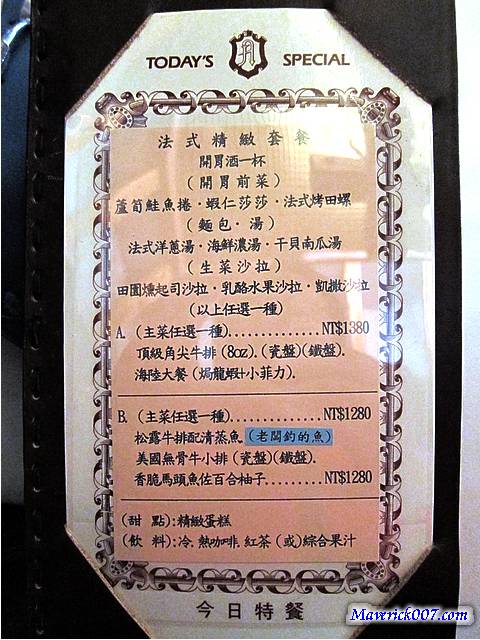 TODAY'S SPECIAL
法式精緻套餐
開胃酒一杯
(開胃前菜)
蘆筍鮭魚捲·蝦仁莎莎·法式烤田螺
(麵包·湯)
法式洋蔥湯·海鮮濃湯·干貝南瓜湯
(生菜沙拉)
田園燻起司沙拉·乳酪水果沙拉·凱撒沙拉
(以上任選一種)
A. (主菜任選一種)..............NT$1380
頂級角尖牛排 (8oz). (瓷盤)(鐵盤).
海陸大餐 (焗龍蝦+小菲力).
B. (主菜任選一種)..............NT$1280
松露牛排配清蒸魚 (老闆釣的魚)
美國無骨牛小排 (瓷盤)(鐵盤).
香脆馬頭魚佐百合柚子.........NT$1280
(甜 點):精緻蛋糕
(飲 料):冷.熱咖啡.紅茶 (或)綜合果汁
今日特餐
Maverick007.com